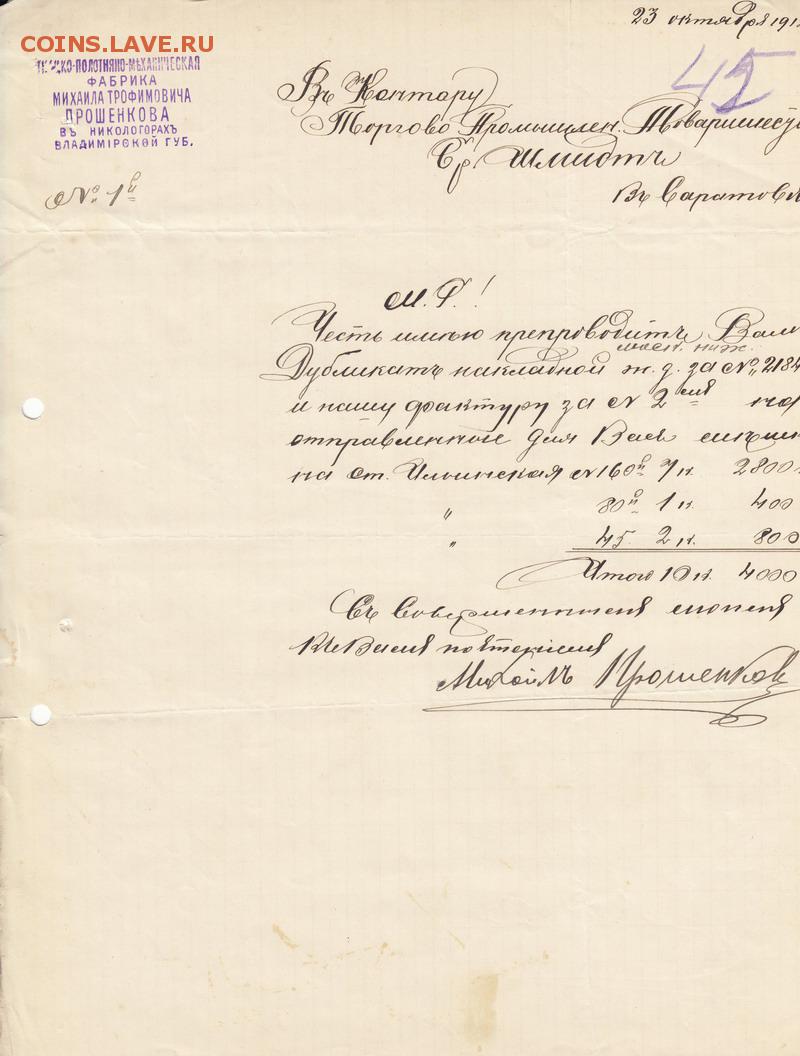 COINS.LAVE.RU
23 октября 191
ТКАЦКО-ПОЛОТНЯНО-МЕХАНИЧЕСКАЯ
ФАБРИКА
МИХАИЛА ТРОФИМОВИЧА
ПРОШЕНКОВА
ВЪ НИКОЛОГОРАХЪ
ВЛАДИМІРСКОЙ ГУБ.
45
Въ Контору
Торгово Промышлен. Товариществ
Бр. Шмидтъ
Въ Саратовѣ
№ 1й
М. Г.!
Честь имѣю препроводить Вамъ
моск. ниж.
Дубликатъ накладной ж. д. за № 2184
и нашу фактуру за № 2 на
отправленное для Васъ
на ст. Ильинская № 160й 7 к. 2800
" 80й 1 к. 400
" 45. 2 к. 800
Итого 10 к. 4000
Съ совершеннымъ
къ Вамъ почтеніемъ
Михаилъ Прошенков